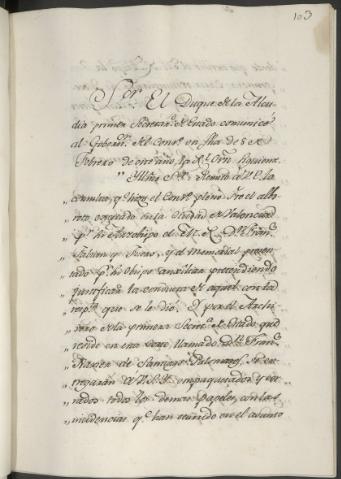 103
Sor. El Duque de la Alcu-
dia primer Secretario de Estado comunicó
al Gobern.r del Cons.o en fha de 5 de
Febrero de este año, la R.l Orn siguiente
" Illmo S.or Remito a V.I. la
consulta, q.e hizo el Cons.o pleno sre el albo-
" roto, ocurrido en la Ciudad de Valencia
" p.r el Arzobispo de ella D.n Fran.co
" Fabian y Fuero, y el memorial presen-
" tado p.r el Obispo auxiliar pretendiendo
" justificar la conducta de aquel con la
" que se le dió. Y por el Archi-
" vero de la primera Secret.a de Estado, que
" reside en esta Corte, llamado D.n Fran.co
" Xavier de Santiago Palomares, se en-
" tregarán a V.S.I. empaquetados y cer-
" rados todos los demas papeles, con las
" incidencias q.e han ocurrido en el asunto